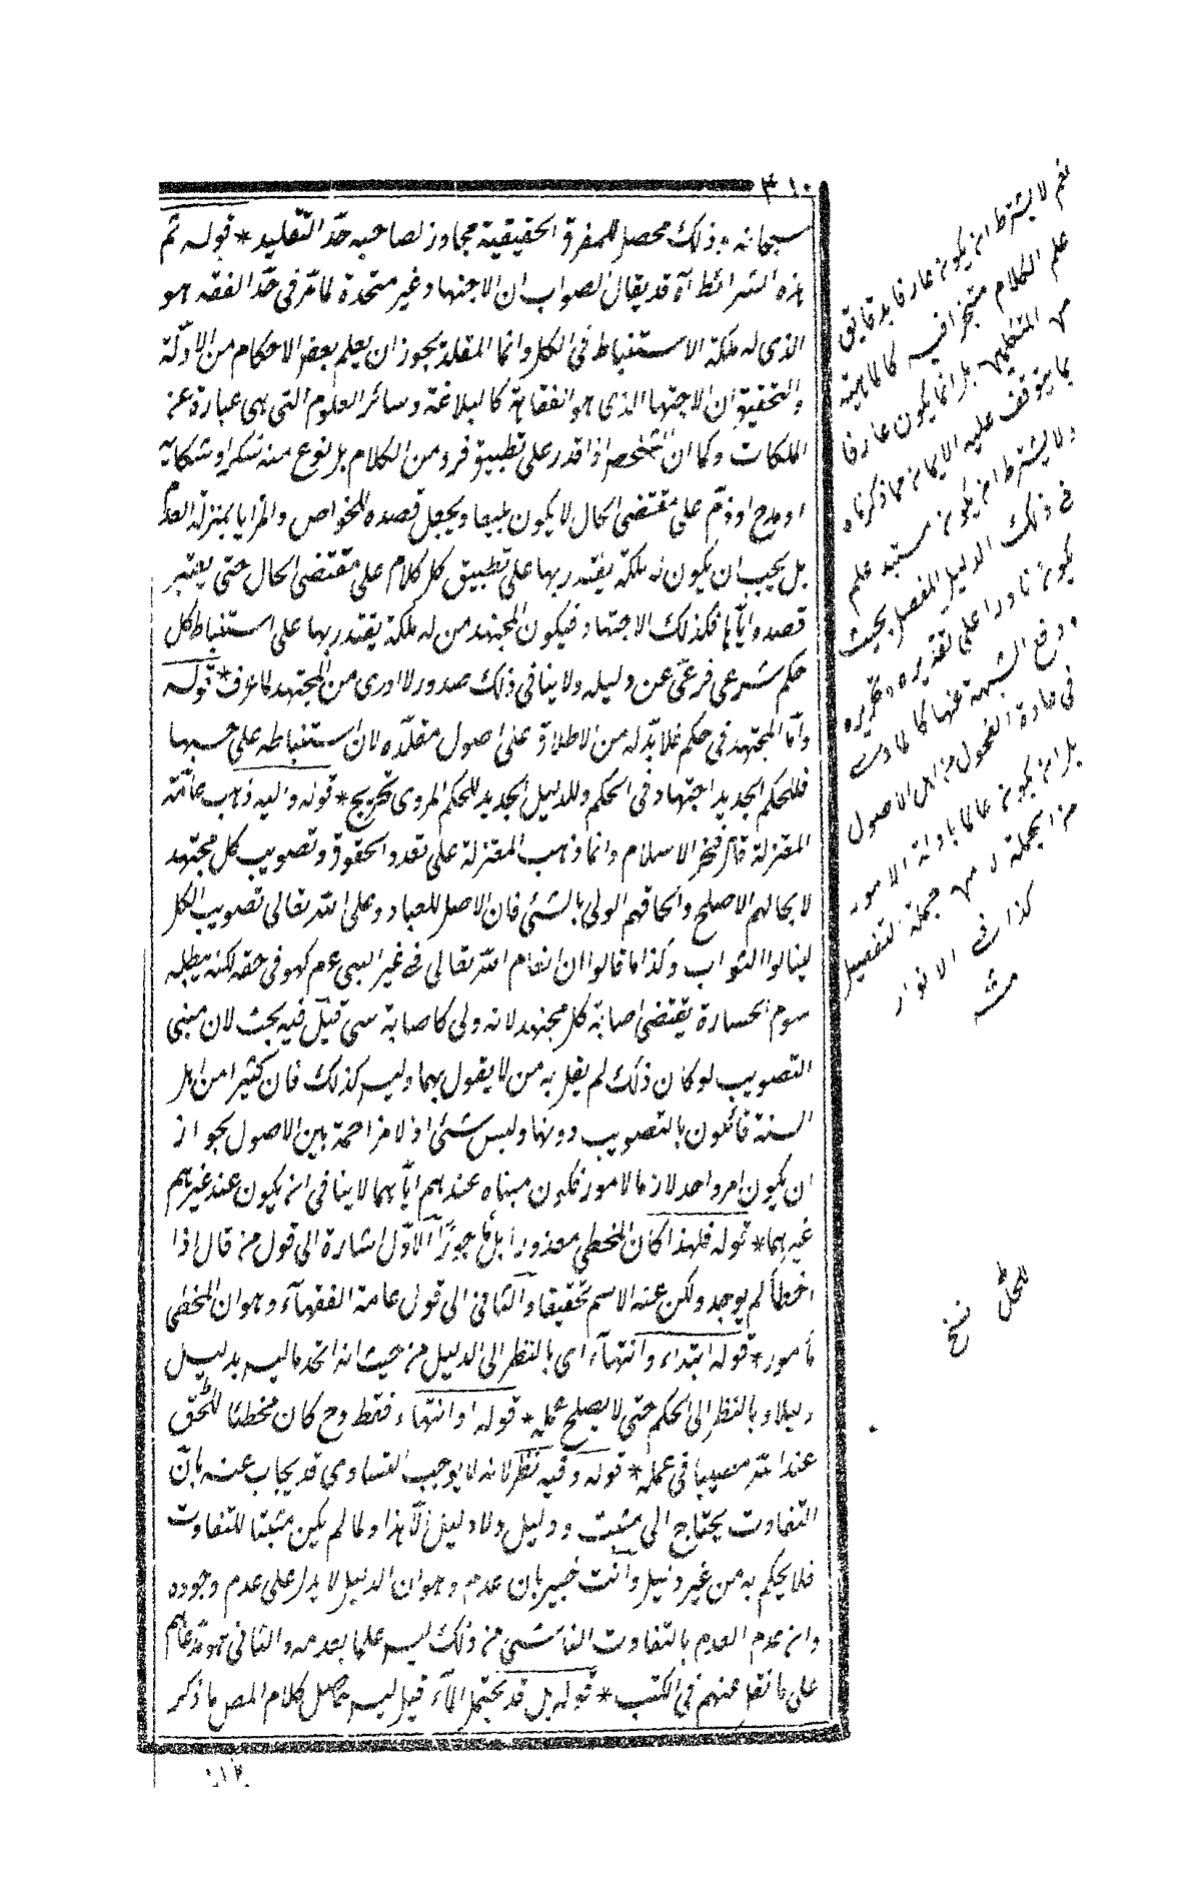 ٣١٠
سبحانه وذلك محصل للمفرق الحقيقية مجاوز لصاحبه حدّ التقليد * قوله ثم
هذه الشرائط آه قد يقال الصواب ان الاجتهاد غير متحدة لما مرّ في حدّ الفقه هو
الذى له ملكة الاستنباط في الكل وانما المقلد يجوز ان يعلم بعض الاحكام من الادلّة
والتحقيق ان الاجتهاد الذى هو الفقاهة كالبلاغة وسائر العلوم التى هى عبارة عن
الملكات وكما ان الشخص اذا قدر على تطبيق فرد من الكلام بل نوع منه شكر او شكاية
او مدح او ذمّ على مقتضى الحال لا يكون بليغا ويجعل قصده للخواص والمزايا بمنزلة العدم
بل يجب ان يكون له ملكة يقتدر بها على تطبيق كل كلام على مقتضى الحال حتى يعتبر
قصده ايّاها فكذلك الاجتهاد فيكون المجتهد من له ملكة يقتدر بها على استنباط كل
حكم شرعى فرعىّ عن دليله ولا ينافى ذلك صدور لا ادرى من المجتهد لما عرف * قوله
وامّا المجتهد في حكم فلا بدّ له من الاطلاع على اصول مقلّده لان استنباطه على حسبها
فللحكم الجديد اجتهاد في الحكم وللدليل الجديد للحكم المروى تخريج * قوله واليه ذهب عامّة
المعتزلة قال فخر الاسلام وانما ذهب المعتزلة على تعدد الحقوق وتصويب كل مجتهد
لايجابهم الاصلح والحاقهم الولى بالنبى فان الاصلح للعباد وعلى الله تعالى تصويب الكل
لينالوا الثواب وكذا ما قالوا ان انعام الله تعالى في غير النبى عم كهو في حقه لكنه يبطله
سوم الخسارة يقتضى اصابة كل مجتهد لانه ولى كاصابة نبى قيل فيه بحث لان مبنى
التصويب لو كان ذلك لم يقل به من لا يقول بهما وليس كذلك فان كثيرا من اهل
السنة قائلون بالتصويب دونها وليس بشئ اذ لا مزاحمة بين الاصول لجواز
ان يكون امر واحد لازما لامور فكون مبناه عندهم ايّاهما لا ينافى ان يكون عند غيرهم
غيرهما * قوله فلهذا كان المخطى معذورا بل مأجورًا الاوّل اشارة الى قول من قال اذا
اخطأ لم يوجد ولكن عنه الاسم تحقيقا والثانى الى قول عامة الفقهاء وهو ان المخطى
مأمور * قوله ابتداء وانتهاء اى بالنظر الى الدليل من حيث انه اتخذ ما ليس بدليل
دليلا وبالنظر الى الحكم حتى لا يصلح عمله * قوله او انتهاء فقط وح كان مخطئا للحق
عند الله مصيبا في عمله * قوله وفيه نظر لانه لا يوجب التساوى قد يجاب عنه بانّ
التفاوت يحتاج الى مثبت ودليل ولا دليل الّا هذا ولما لم يكن مثبتا للتفاوت
فلا يحكم به من غير دليل وانت خبير بان عدم وهو ان الدليل لا يدل على عدم وجوده
وان عدم العلم بالتفاوت الناشئ من ذلك ليس علما بعدمه والثانى هو مدّعاهم
على ما نقل عنهم في الكتب * قوله بل قد يحتمل الآه قيل ليس حاصل كلام المص ما ذكر
نعم لا يشترط ان يكون عارفا بدقايق
علم الكلام متبحرا فيه كالماهية
من المتكلمين بل انما يكون عارفا
بما يتوقف عليه الايمان مما ذكرناه
ولا يشترط ان يكون مستند علم
في ذلك الدليل المفصل بحيث
يكون قادرا على تقديره وتحريره
ودفع الشبهة عنها كما
في عادة الفحول من اهل الاصول
بل ان يكون عالما بادلة الامور
من الجملة لا من جهة التفصيل
كذا في الانوار
منه
للمحل نسخ